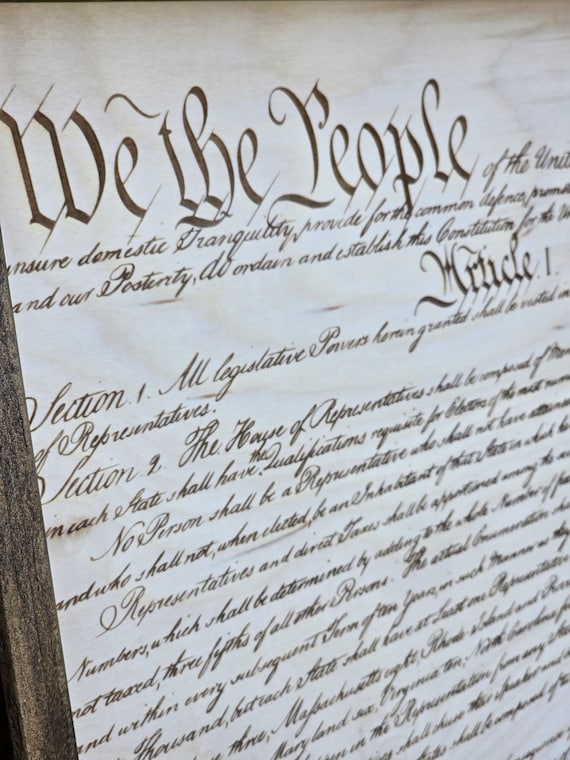 We the People of the Unit
insure domestic Tranquility, provide for the common defence, promo
and our Posterity, do ordain and establish this Constitution for the Un
Article. I.
Section. 1. All legislative Powers herein granted shall be vested in
of Representatives.
Section. 2. The House of Representatives shall be composed of Mem
in each State shall have the Qualifications requisite for Electors of the most num
No Person shall be a Representative who shall not have attained
and who shall not, when elected, be an Inhabitant of that State in which he
Representatives and direct Taxes shall be apportioned among the
Numbers, which shall be determined by adding to the whole Number of free
not taxed, three fifths of all other Persons. The actual Enumeration
and within every subsequent Term of ten Years, in such Manner as they
Thousand, but each State shall have at Least one Representative
three, Massachusetts eight, Rhode Island and
Maryland six, Virginia ten, North Carolina five
in the Representation from any State
shall chuse their Speaker and
shall be composed of